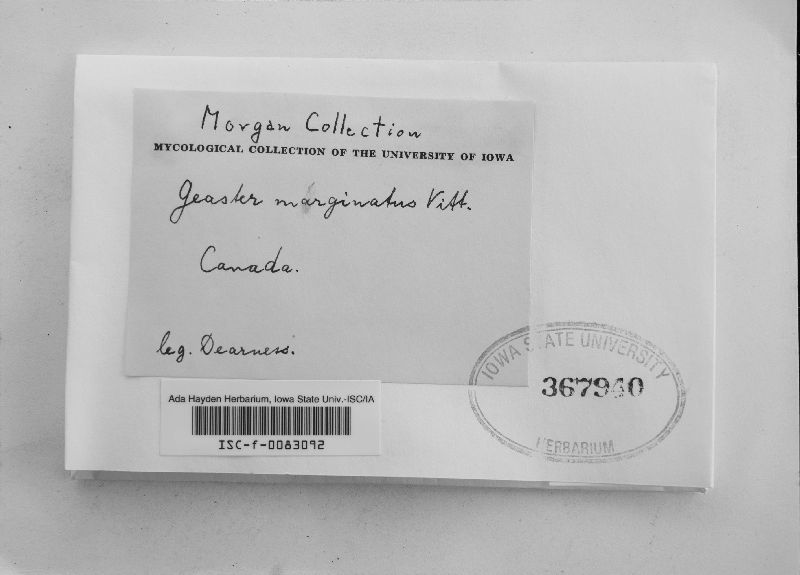 Morgan Collection
MYCOLOGICAL COLLECTION OF THE UNIVERSITY OF IOWA
Geaster marginatus Vitt.
Canada.
leg. Dearness.
Ada Hayden Herbarium, Iowa State Univ.-ISC/IA
ISC-f-0083092
IOWA STATE UNIVERSITY
367940
HERBARIUM